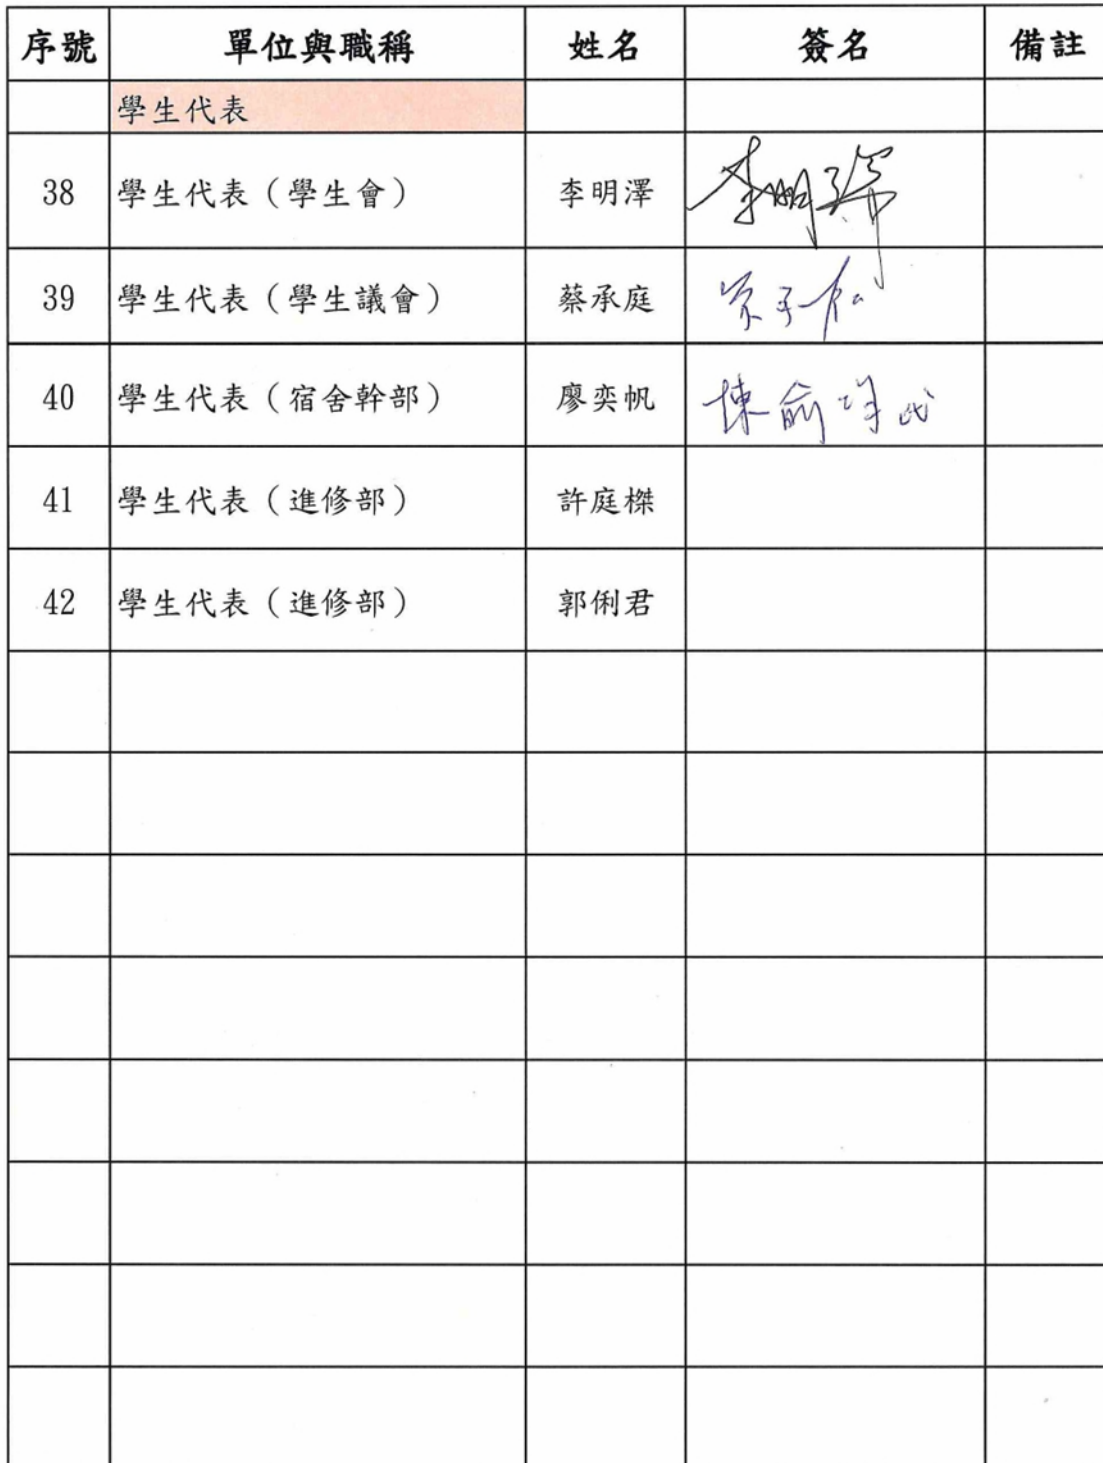 序號 單位與職稱 姓名 簽名 備註
學生代表
38 學生代表（學生會） 李明澤 李明澤
39 學生代表（學生議會） 蔡承庭
40 學生代表（宿舍幹部） 廖奕帆 陳俞
41 學生代表（進修部） 許庭櫸
42 學生代表（進修部） 郭俐君